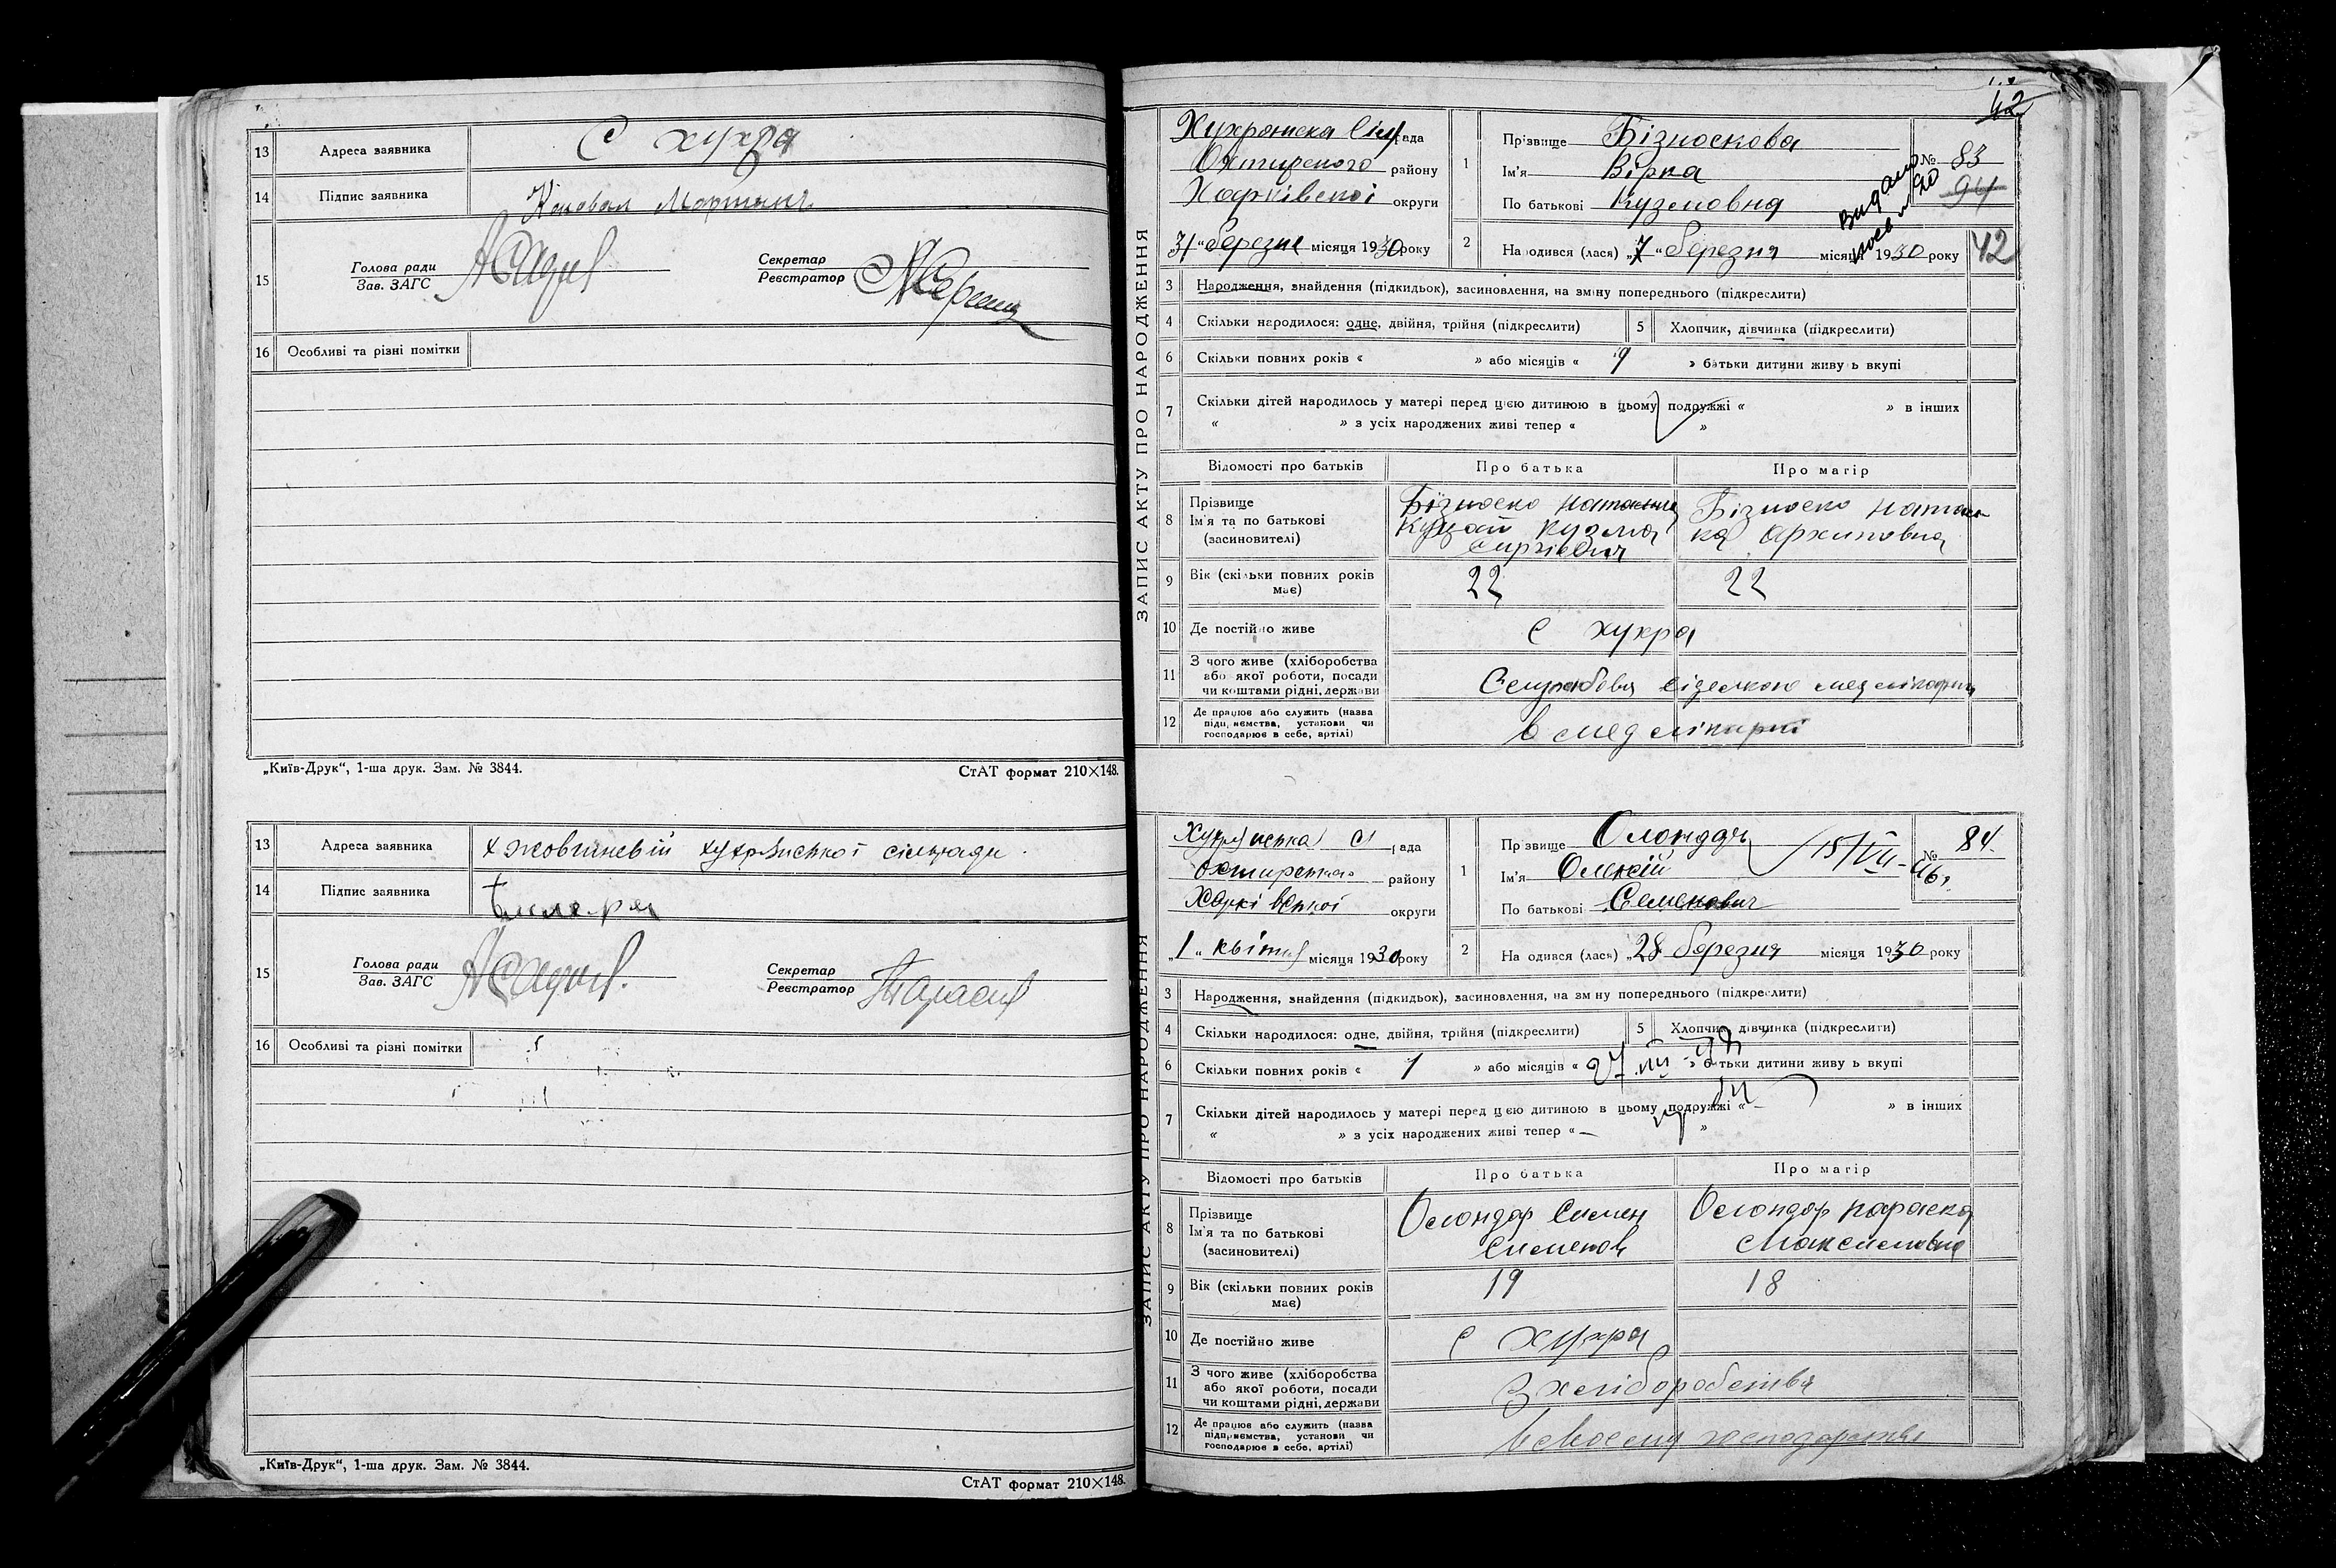 13 Адреса заявника С хухра
14 Підпис заявника Коновал Мартин
15 Голова ради
Зав. ЗАГС
Секретар
Реєстратор
16 Особливі та різні помітки
„Київ-Друк“, 1-ша друк. Зам. № 3844. СтАТ формат 210×148.
13 Адреса заявника х жовтневий хухрянської сільради
14 Підпис заявника
15 Голова ради
Зав. ЗАГС
Секретар
Реєстратор Тарасов
16 Особливі та різні помітки
„Київ-Друк“, 1-ша друк. Зам. № 3844.
СтАТ формат 210×148.
42
ЗАПИС АКТУ ПРО НАРОДЖЕННЯ
рада
Охтирского району
Харківської округи
„31“ березня місяця 1930 року
1 Прізвище Бізноскова
Ім'я Вірка
По батькові Куземовна
№ 83
94
видано
2 Народився (лася) „7“ березня місяця 1930 року
42
3 Народження, знайдення (підкидьок), засиновлення, на зміну попереднього (підкреслити)
4 Скільки народилося: одне, двійня, трійня (підкреслити) 5 Хлопчик, дівчинка (підкреслити)
6 Скільки повних років « » або місяців « 9 » батьки дитини живуть вкупі
7 Скільки дітей народилось у матері перед цією дитиною в цьому подружжі « » в інших
« » з усіх народжених живі тепер « »
Відомості про батьків Про батька Про матір
8 Прізвище
Ім'я та по батькові
(засиновителі)
Бізноско Кузма
Бізноско Наталка Архиповна
9 Вік (скільки повних років має) 22 22
10 Де постійно живе С хухра
11 З чого живе (хліборобства
або якої роботи, посади
чи коштами рідні, держави
сіделкою
12 Де працює або служить (назва
підприємства, установи чи
господарює в себе, артілі)
в мед лікарні
ЗАПИС АКТУ ПРО НАРОДЖЕННЯ
Хухрянська с рада
Охтирського району
Харківської округи
„1“ квітня місяця 1930 року
1 Прізвище Слюндарь
Ім'я Олексій
По батькові Семенович
15/VII-46г.
№ 84
2 Народився (лася) „28 березня місяця 1930 року
3 Народження, знайдення (підкидьок), засиновлення, на зміну попереднього (підкреслити)
4 Скільки народилося: одне, двійня, трійня (підкреслити) 5 Хлопчик, дівчинка (підкреслити)
6 Скільки повних років « 1 » або місяців « » батьки дитини живуть вкупі
7 Скільки дітей народилось у матері перед цією дитиною в цьому подружжі « – » в інших
« » з усіх народжених живі тепер « – »
Відомості про батьків Про батька Про матір
8 Прізвище
Ім'я та по батькові
(засиновителі)
Семен
Параска Максимовна
9 Вік (скільки повних років має) 19 18
10 Де постійно живе С Хухра
11 З чого живе (хліборобства
або якої роботи, посади
чи коштами рідні, держави
З хліборобства
12 Де працює або служить (назва
підприємства, установи чи
господарює в себе, артілі)
в своєму господарстві